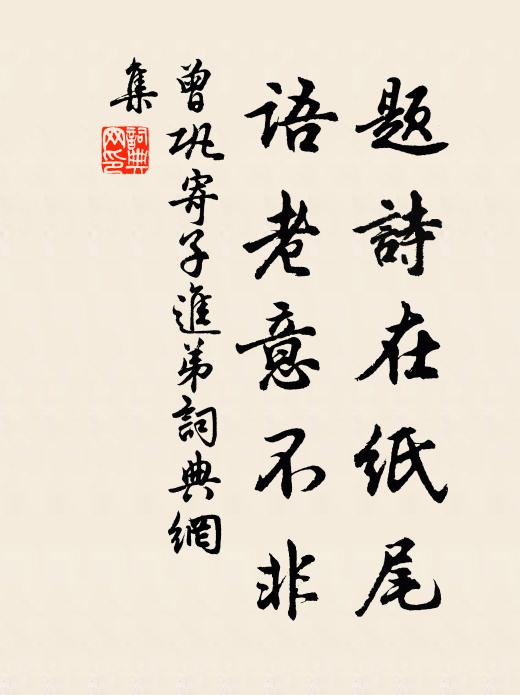 題詩在紙尾
語老意不非
曾巩寄子進弟詞典網
集
詞典網印